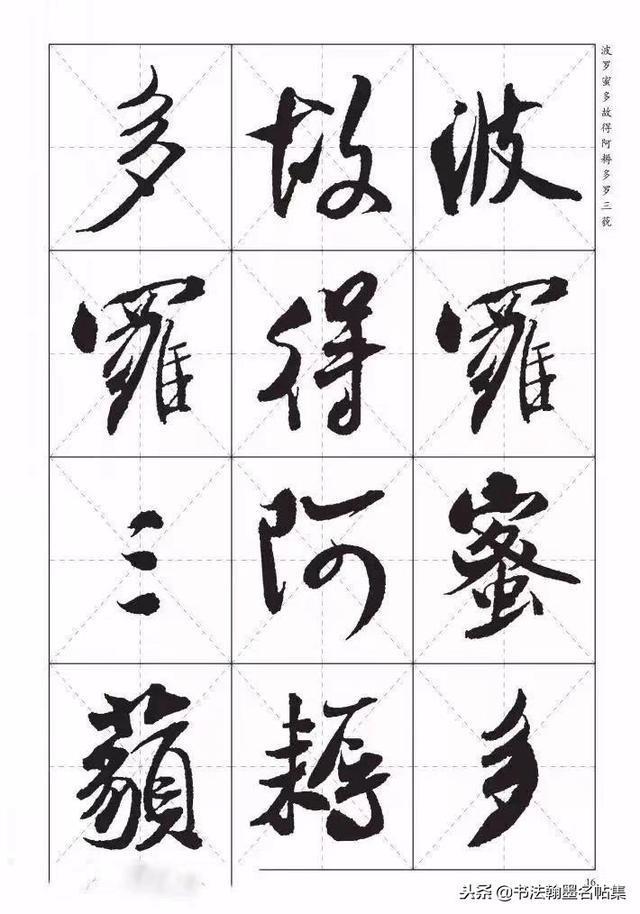 波罗蜜多故得阿耨多罗三藐
波羅蜜多
故得阿耨
多羅三藐
16
头条 @书法翰墨名帖集